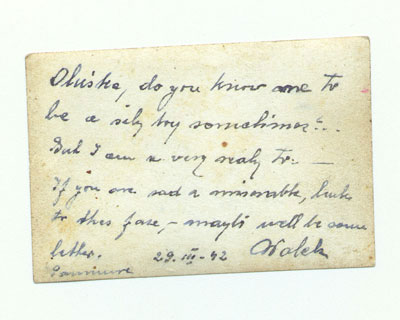 Oluśka, do you know me to
be a sily boy sometimes?..
But I am a very realy to: —
If you are sad a miserable, look
to this fase, – maybi well be some
better. 29. III – 42 Wolek